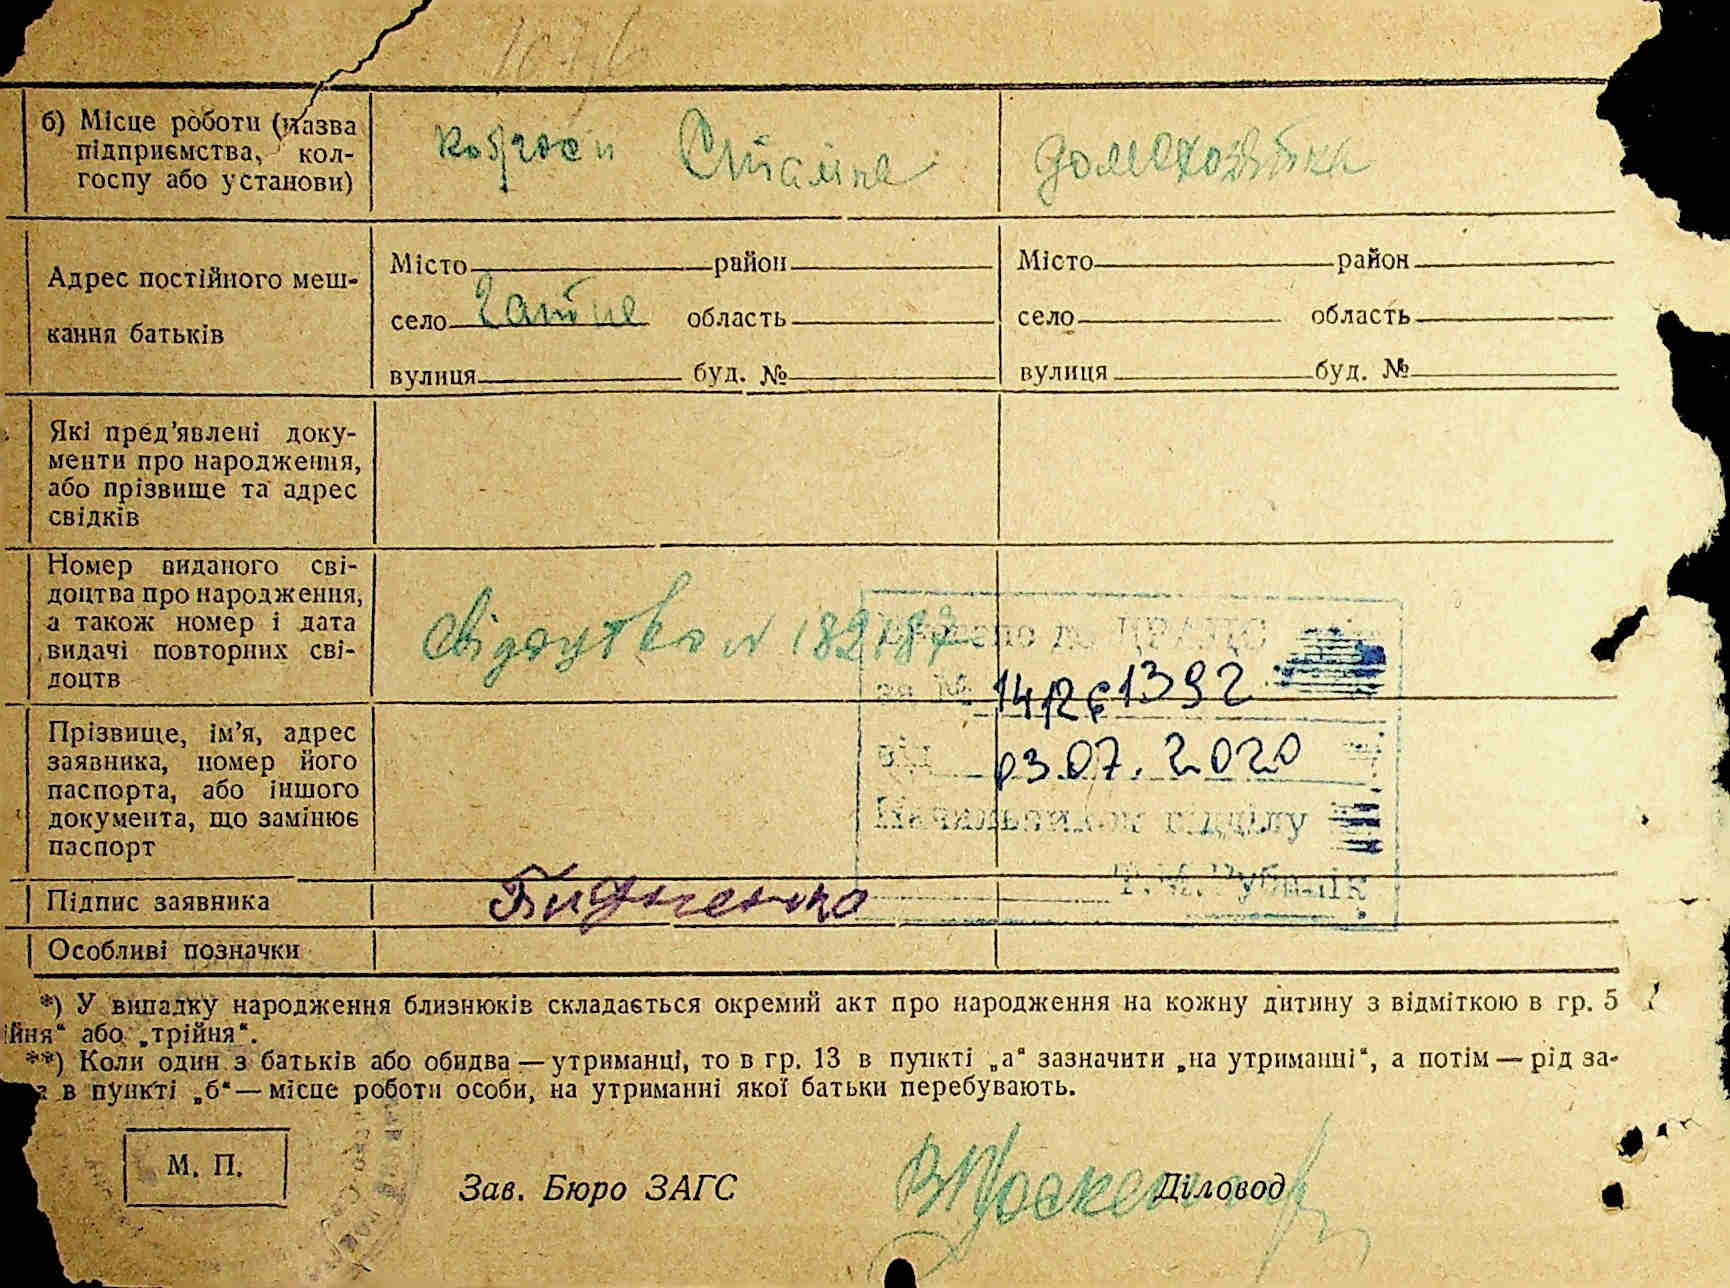 1076
б) Місце роботи (назва
підприємства, кол-
госпу або установи)
колгосп Сталіна
домохозяйка
Адрес постійного меш-
кання батьків
Місто район
село Гатне область
вулиця буд. №
Місто район
село область
вулиця буд. №
Які пред'явлені доку-
менти про народження,
або прізвище та адрес
свідків
Номер виданого сві-
доцтва про народження,
а також номер і дата
видачі повторних сві-
доцтв
Свідоцтво N 182187
до ЦРАЦС
за № 1392
від 03.07.2020
Начальником відділу
Т.М.Рубаник
Прізвище, ім'я, адрес
заявника, номер його
паспорта, або іншого
документа, що замінює
паспорт
Підпис заявника
Особливі позначки
*) У випадку народження близнюків складається окремий акт про народження на кожну дитину з відміткою в гр. 5
ійня“ або „трійня“.
**) Коли один з батьків або обидва — утриманці, то в гр. 13 в пункті „а“ зазначити „на утриманні“, а потім — рід за-
в пункті „б“ — місце роботи особи, на утриманні якої батьки перебувають.
М. П.
Зав. Бюро ЗАГС
Діловод